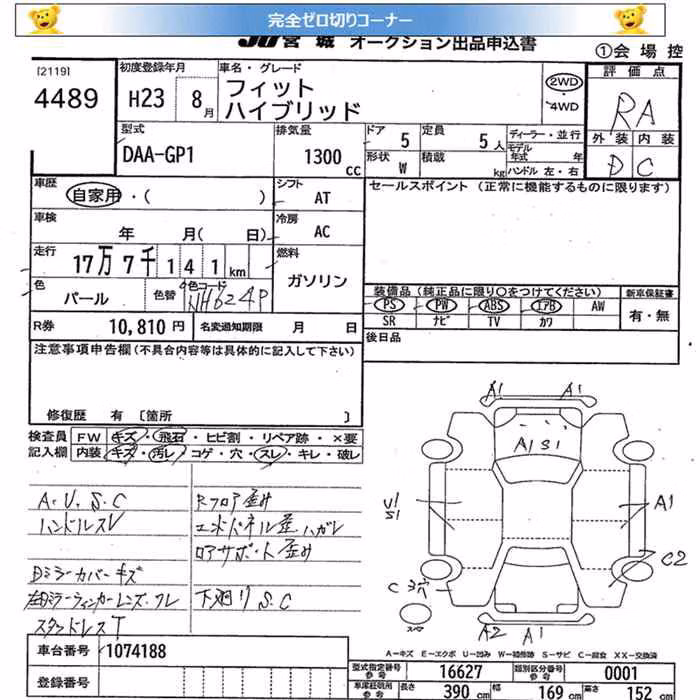 完全ゼロ切りコーナー
JU宮城 オークション出品申込書
①会場控
[2119]
4489
初度登録年月
H23 8月
車名・グレード
フィット
ハイブリッド
2WD
・4WD
評価点
RA
外装 内装
D C
型式
DAA-GP1
排気量
1300 cc
ドア 5
定員 5人
形状 W
積載 kg
ディーラー・並行
モデル年式 年
ハンドル 左・右
車歴
自家用・( )
シフト
AT
セールスポイント (正常に機能するものに限ります)
車検
年 月( 日)
冷房
AC
走行
17万7千141km
燃料
ガソリン
色
パール
色替
色コード
NH624P
装備品(純正品に限り○をつけてください)
新車保証書
PS PW ABS エアB AW
SR ナビ TV カワ
有・無
R券 10,810円
名変通知期限 月 日
後日品
注意事項申告欄(不具合内容等は具体的に記入して下さい)
修復歴 有 [箇所 ]
検査員 FW キズ・飛石・ヒビ割・リペア跡・×要
記入欄 内装 キズ・汚レ・コゲ・穴・スレ・キレ・破レ
A・U、S、C
ハンドルスレ
Dミラーカバーキズ
スタッドレスT
Rフロア歪み
エンドパネル歪ハガレ
ロアサポート歪み
下廻りS.C
A1 A1
A1 S1
U1
S1
A1
C2
C 3穴
スペア
A2 A1
A-キズ E-エクボ U-凹み W-補修跡 S-サビ C-腐食 XX-交換済
車台番号 1074188
型式指定番号 16627
類別区分番号 0001
登録番号
長さ 390 cm 幅 169 cm 高さ 152 cm